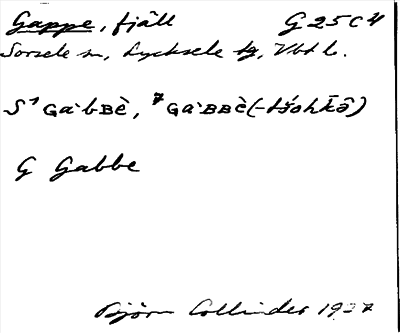 Gappe, fjäll G 25 c 4
Sorsele sn, Lycksele tg, Vbtl.
S ˀGa·bBè, ˀGa·BBè(-tšohkɔ̂)
G Gabbe
Björn Collinder 1937